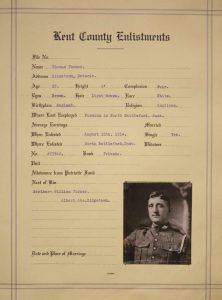 Kent County Enlistments
File No.
Name Thomas Turner.
Address Ridgetown, Ontario.
Age 22. Height 5' Complexion Fair.
Eyes Brown. Hair Light Brown. Race White.
Birthplace England. Religion Anglican.
Where Last Employed Foreman in North Battleford, Sask.
Average Earnings Married
When Enlisted August 15th, 1914. Single Yes.
Where Enlisted North Battleford, Sask. Widower
No. Rank Private.
Unit
Allowance from Patriotic Fund
Next of Kin
Brother: William Turner.
Albert Ridgetown.
Date and Place of Marriage